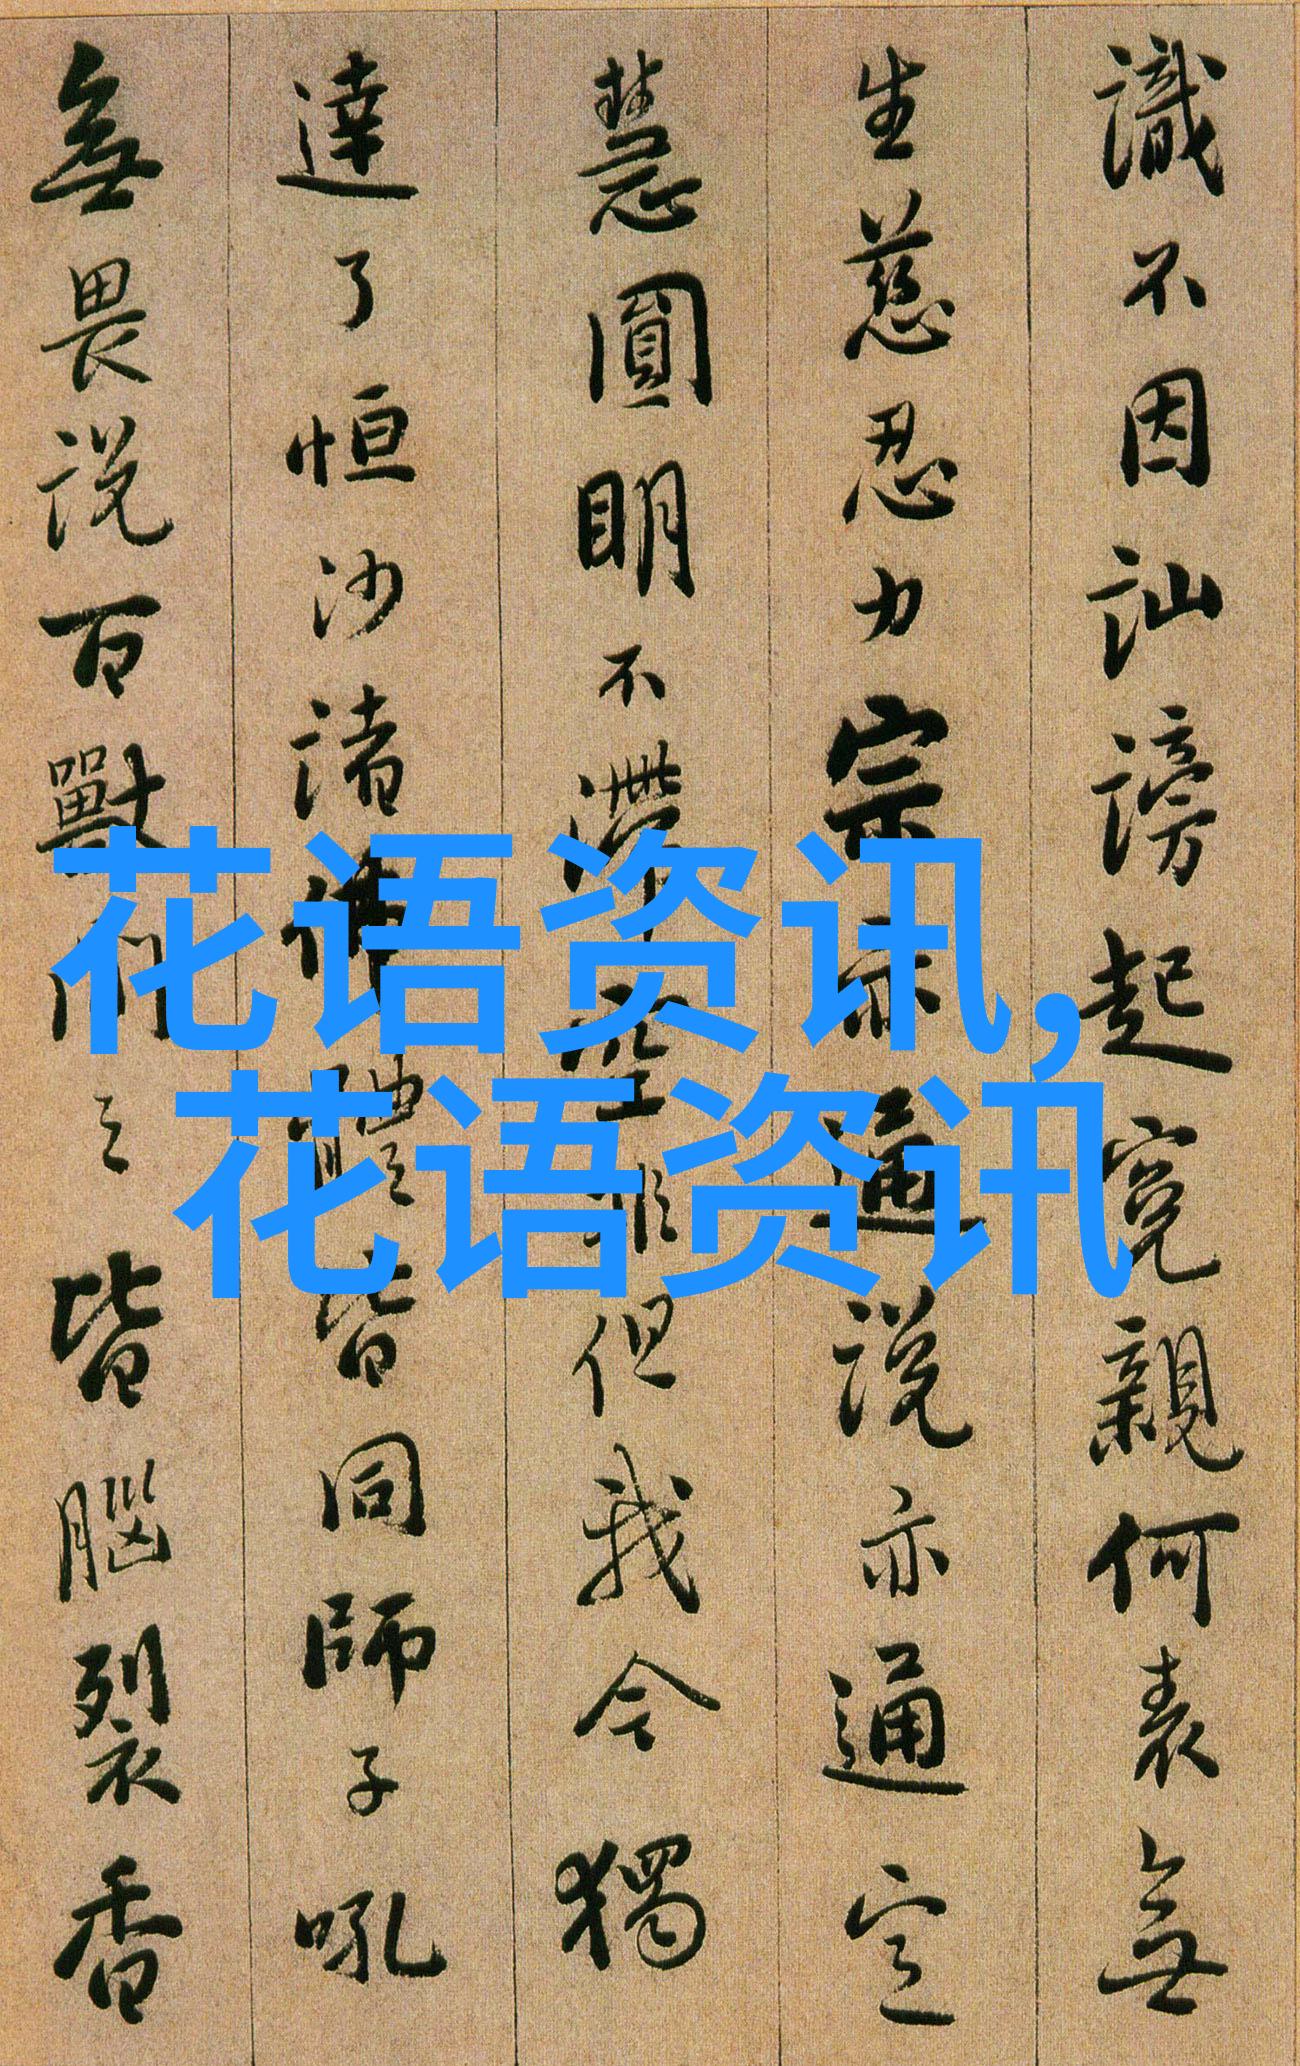 識不因訕謗起寃親何表無
生慈忍力宗亦通説亦通定
慧圓明不滯空但我今獨
達了恒沙諸佛體皆同師子吼
無畏説百獸聞之皆腦裂香
花语资讯,
花语资讯